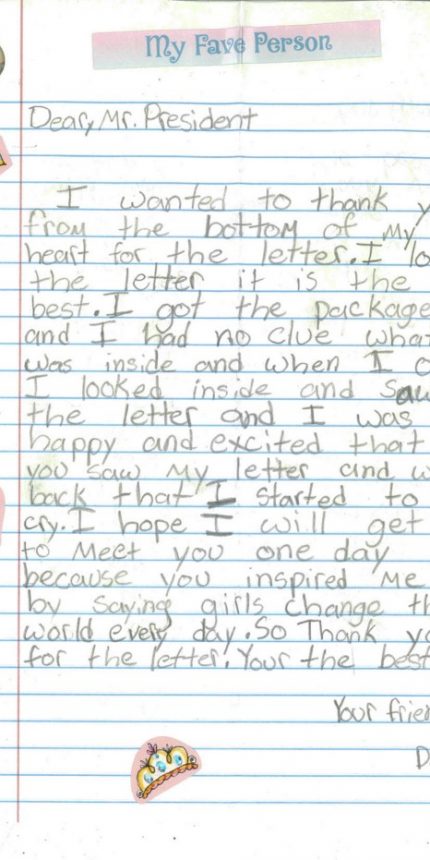 My Fave Person
Dear, Mr. President
I wanted to thank y
from the bottom of My
heart for the letter. I lo
the letter it is the
best. I got the package
and I had no clue what
was inside and when I o
I looked inside and saw
the letter and I was
happy and excited that
you saw My letter and w
back that I started to
cry. I hope I will get
to Meet you one day
because you inspired Me
by saying girls change th
world every day. So Thank yo
for the letter! Your the best
Your frien
D